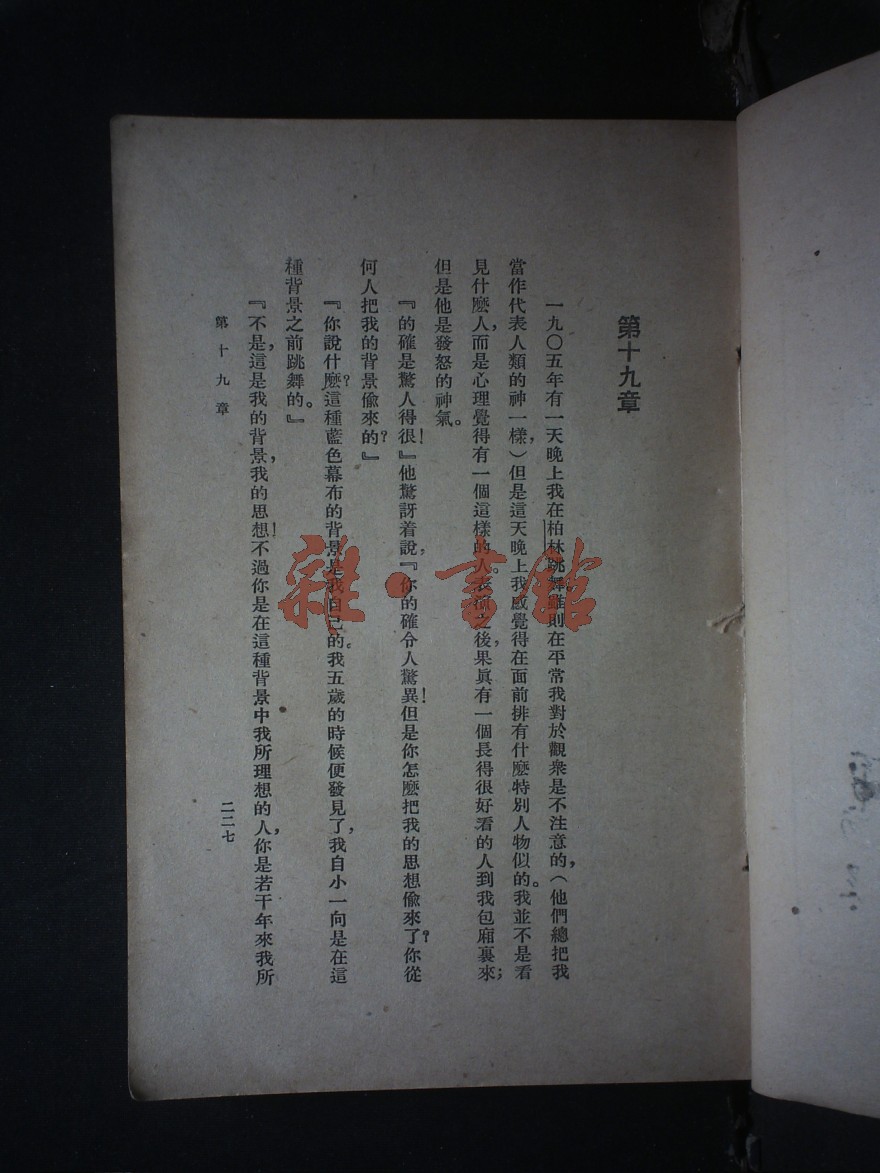 第十九章
一九〇五年有一天晚上我在柏林跳舞。雖則在平常我對於觀衆是不注意的，（他們總把我
當作代表人類的神一樣，）但是這天晚上我感覺得在面前排有什麽特別人物似的。我並不是看
見什麽人，而是心理覺得有一個這樣的人。表演之後，果眞有一個長得很好看的人到我包廂裏來；
但是他是發怒的神氣。
『的確是驚人得很！』他驚訝着說，『你的確令人驚異！但是你怎麽把我的思想偸來了？你從
何人把我的背景偸來的？』
『你說什麽？這種藍色幕布的背景是我自己的。我五歲的時候便發見了，我自小一向是在這
種背景之前跳舞的。』
『不是，這是我的背景，我的思想！不過你是在這種背景中我所理想的人，你是若干年來我所
第十九章
二二七
雜·書館